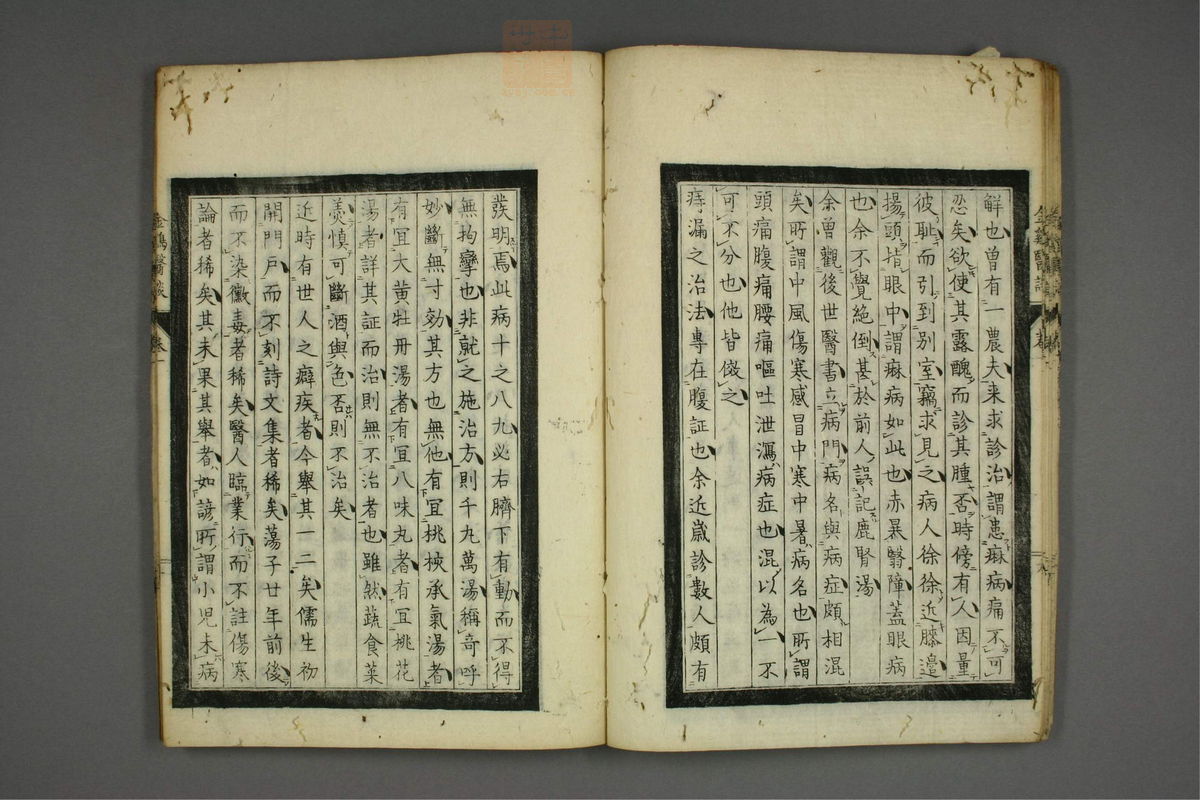 鮮也曾有一農夫来求診治謂患痳病痛不可
忍矣欲使其露醜而診其腫否時傍有人因量
彼恥而引到別室竊求見之病人徐徐近膝邉
揚頭指眼中謂痳病如此也赤暴醫障蓋眼病
也余不覺絶倒甚於前人誤記鹿腎湯
余曽觀後世醫書立病門病名與病症頗相混
矣所謂中風傷寒感冒中寒中暑病名也所謂
頭痛腹痛腰痛嘔吐泄瀉病症也混以為一不
可不分也他皆倣之
痔漏之治法專在腹証也余近歳診數人頗有
發明焉此病十之八九必右臍下有動而不得
無拘攣也非就之施治方則千丸萬湯稱奇呼
妙斷無寸効其方也無他有宜桃核承氣湯者
有宜大黄牡丹湯者有宜八味丸者有宜桃花
湯者詳其証而治則無不治者也雖然蔬食菜
羮慎可斷酒與色否則不治矣
近時有世人之癖疾者今舉其一二矣儒生初
開門戸而不刻詩文集者稀矣蕩子廿年前後
而不染黴毒者稀矣醫人臨業行而不註傷寒
論者稀矣其未果其舉者如諺所謂小児未病